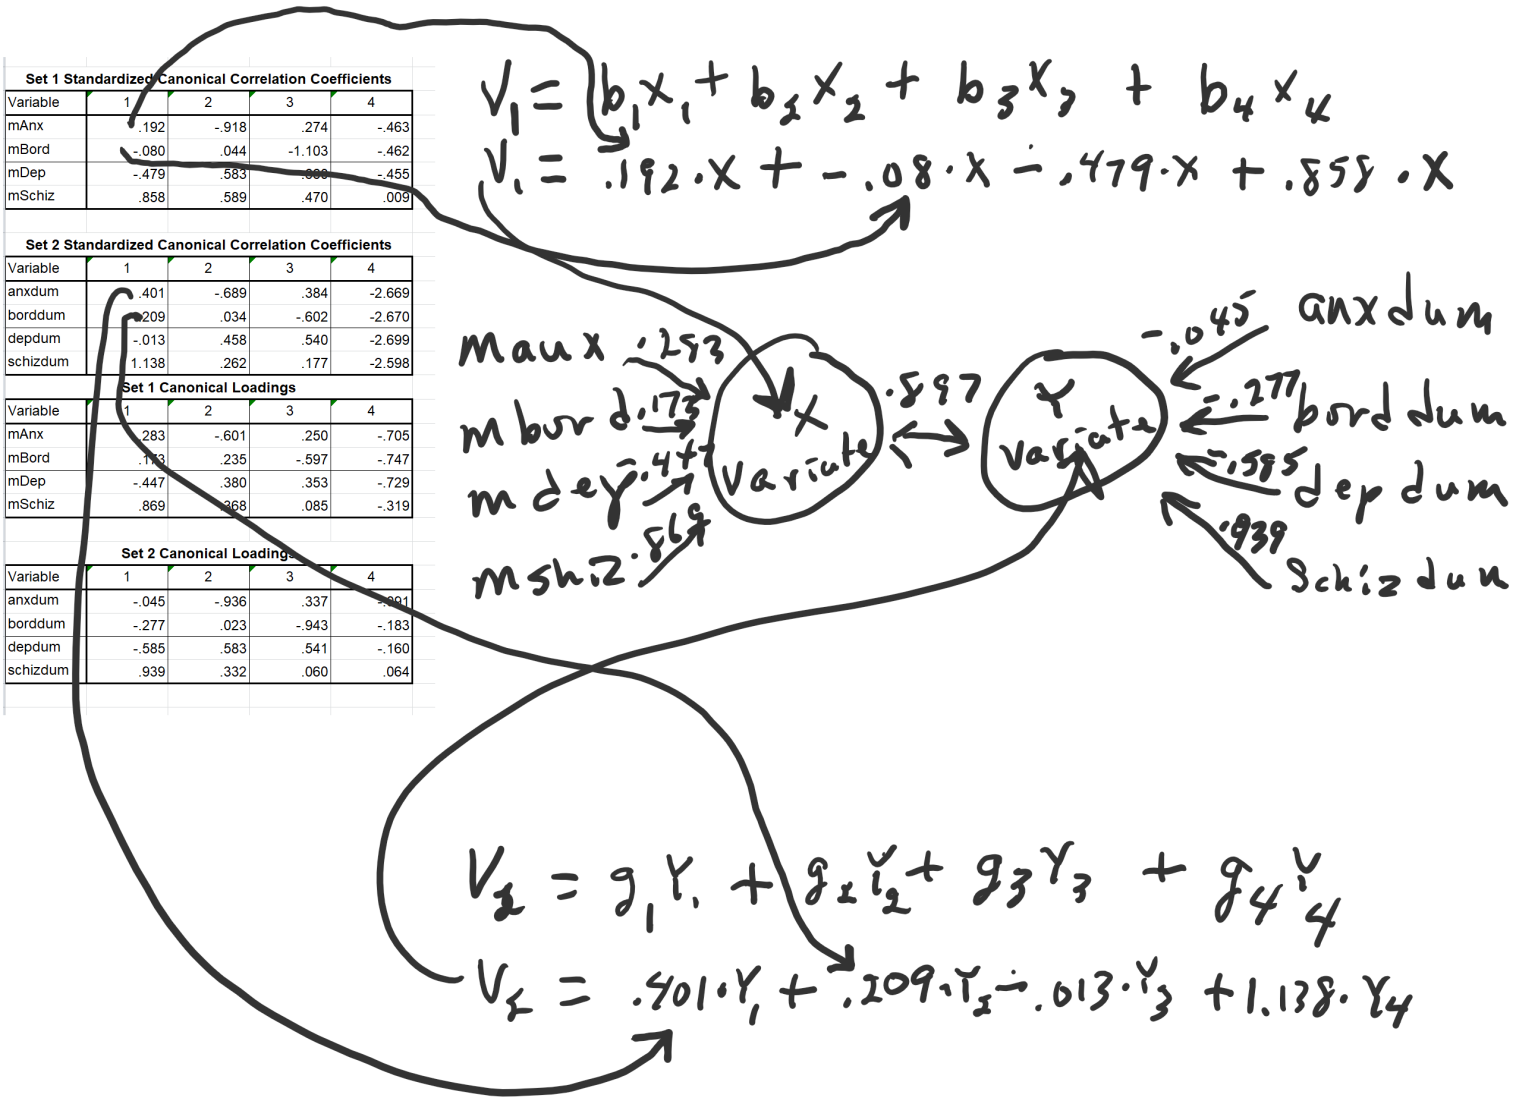 Set 1 Standardized Canonical Correlation Coefficients
Variable 1 2 3 4
mAnx .192 -.918 .274 -.463
mBord -.080 .044 -1.103 -.462
mDep -.479 .583 -.455
mSchiz .858 .589 .470 .009
Set 2 Standardized Canonical Correlation Coefficients
Variable 1 2 3 4
anxdum .401 -.689 .384 -2.669
borddum .209 .034 -.602 -2.670
depdum -.013 .458 .540 -2.699
schizdum 1.138 .262 .177 -2.598
Set 1 Canonical Loadings
Variable 1 2 3 4
mAnx .283 -.601 .250 -.705
mBord .173 .235 -.597 -.747
mDep -.447 .380 .353 -.729
mSchiz .869 .368 .085 -.319
Set 2 Canonical Loadings
Variable 1 2 3 4
anxdum -.045 -.936 .337 -.091
borddum -.277 .023 -.943 -.183
depdum -.585 .583 .541 -.160
schizdum .939 .332 .060 .064
V1 = b1X1 + b2X2 + b3X3 + b4X4
V1 = .192·X + -.08·X - .479·X + .858·X
manx .283
mbord .173
mdep -.447
mshiz .869
X
Variate
.897
Y
Variate
-.045 anxdum
-.277 borddum
-.585 depdum
.939 Schizdum
V2 = g1Y1 + g2Y2 + g3Y3 + g4Y4
V2 = .401·Y1 + .209·Y2 - .013·Y3 + 1.138·Y4